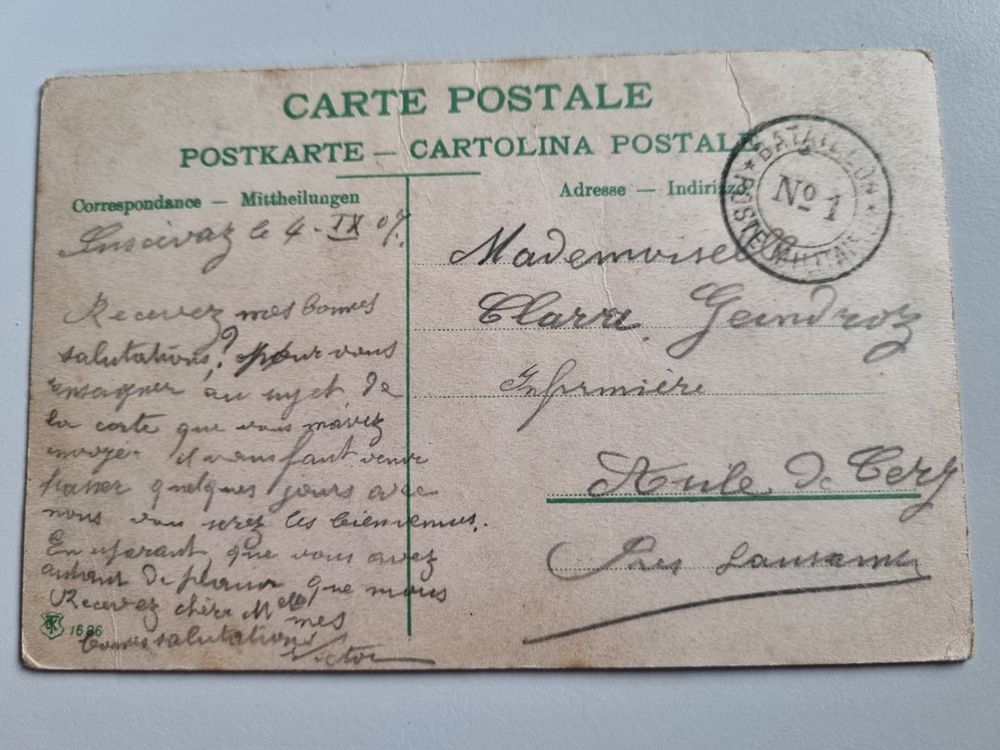 CARTE POSTALE
POSTKARTE — CARTOLINA POSTALE
Correspondance — Mittheilungen
Adresse — Indirizzo
★ BATAILLON ★ POSTE MILITAIRE
No 1
le 4 - IX 07.
Recevez mes bonnes
salutations, pour vous
renseigner au sujet de
la carte que vous m'avez
envoyer il vous faut venir
passer quelques jours avec
nous vous serez les bienvenus.
En esperant que vous avez
autant de plaisir que nous
Recevez chère Mlle, mes
bonnes salutations
Victor
Mademoiselle
Clara Gendroz
Infirmière
Asile de Cery
Près Lausanne
1686